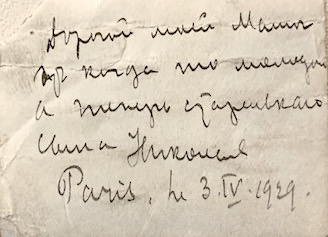 Дорогой моей Маме
от когда то молодого
а теперь старенького
сына Николая
Paris, le 3.IV.1929.